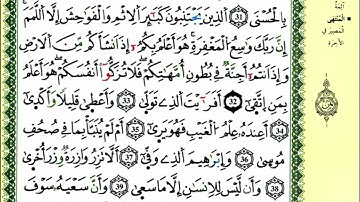 بِالْحُسْنَى ﴿31﴾ الَّذِينَ يَجْتَنِبُونَ كَبَٰٓئِرَ الْإِثْمِ وَالْفَوَٰحِشَ إِلَّا اللَّمَمَ
إِنَّ رَبَّكَ وَٰسِعُ الْمَغْفِرَةِ هُوَ أَعْلَمُ بِكُمُۥٓ إِذْ أَنشَأَكُم مِّنَ الْأَرْضِ
وَإِذْ أَنتُمُۥٓ أَجِنَّةٌ فِي بُطُونِ أُمَّهَٰتِكُمْ فَلَا تُزَكُّوٓاْ أَنفُسَكُمْ هُوَ أَعْلَمُ
بِمَنِ اتَّقَىٰٓ ﴿32﴾ أَفَرَٰٓيْتَ الَّذِي تَوَلَّىٰ ﴿33﴾ وَأَعْطَىٰ قَلِيلًا وَأَكْدَىٰٓ
﴿34﴾ أَعِندَهُۥ عِلْمُ الْغَيْبِ فَهُوَ يَرَىٰٓ ﴿35﴾ أَمْ لَمْ يُنَبَّأْ بِمَا فِي صُحُفِ
مُوسَىٰ ﴿36﴾ وَإِبْرَٰهِيمَ الَّذِي وَفَّىٰٓ ﴿37﴾ أَلَّا تَزِرُ وَازِرَةٌ وِزْرَ أُخْرَىٰ
﴿38﴾ وَأَن لَّيْسَ لِلْإِنسَٰنِ إِلَّا مَا سَعَىٰ ﴿39﴾ وَأَنَّ سَعْيَهُۥ سَوْفَ